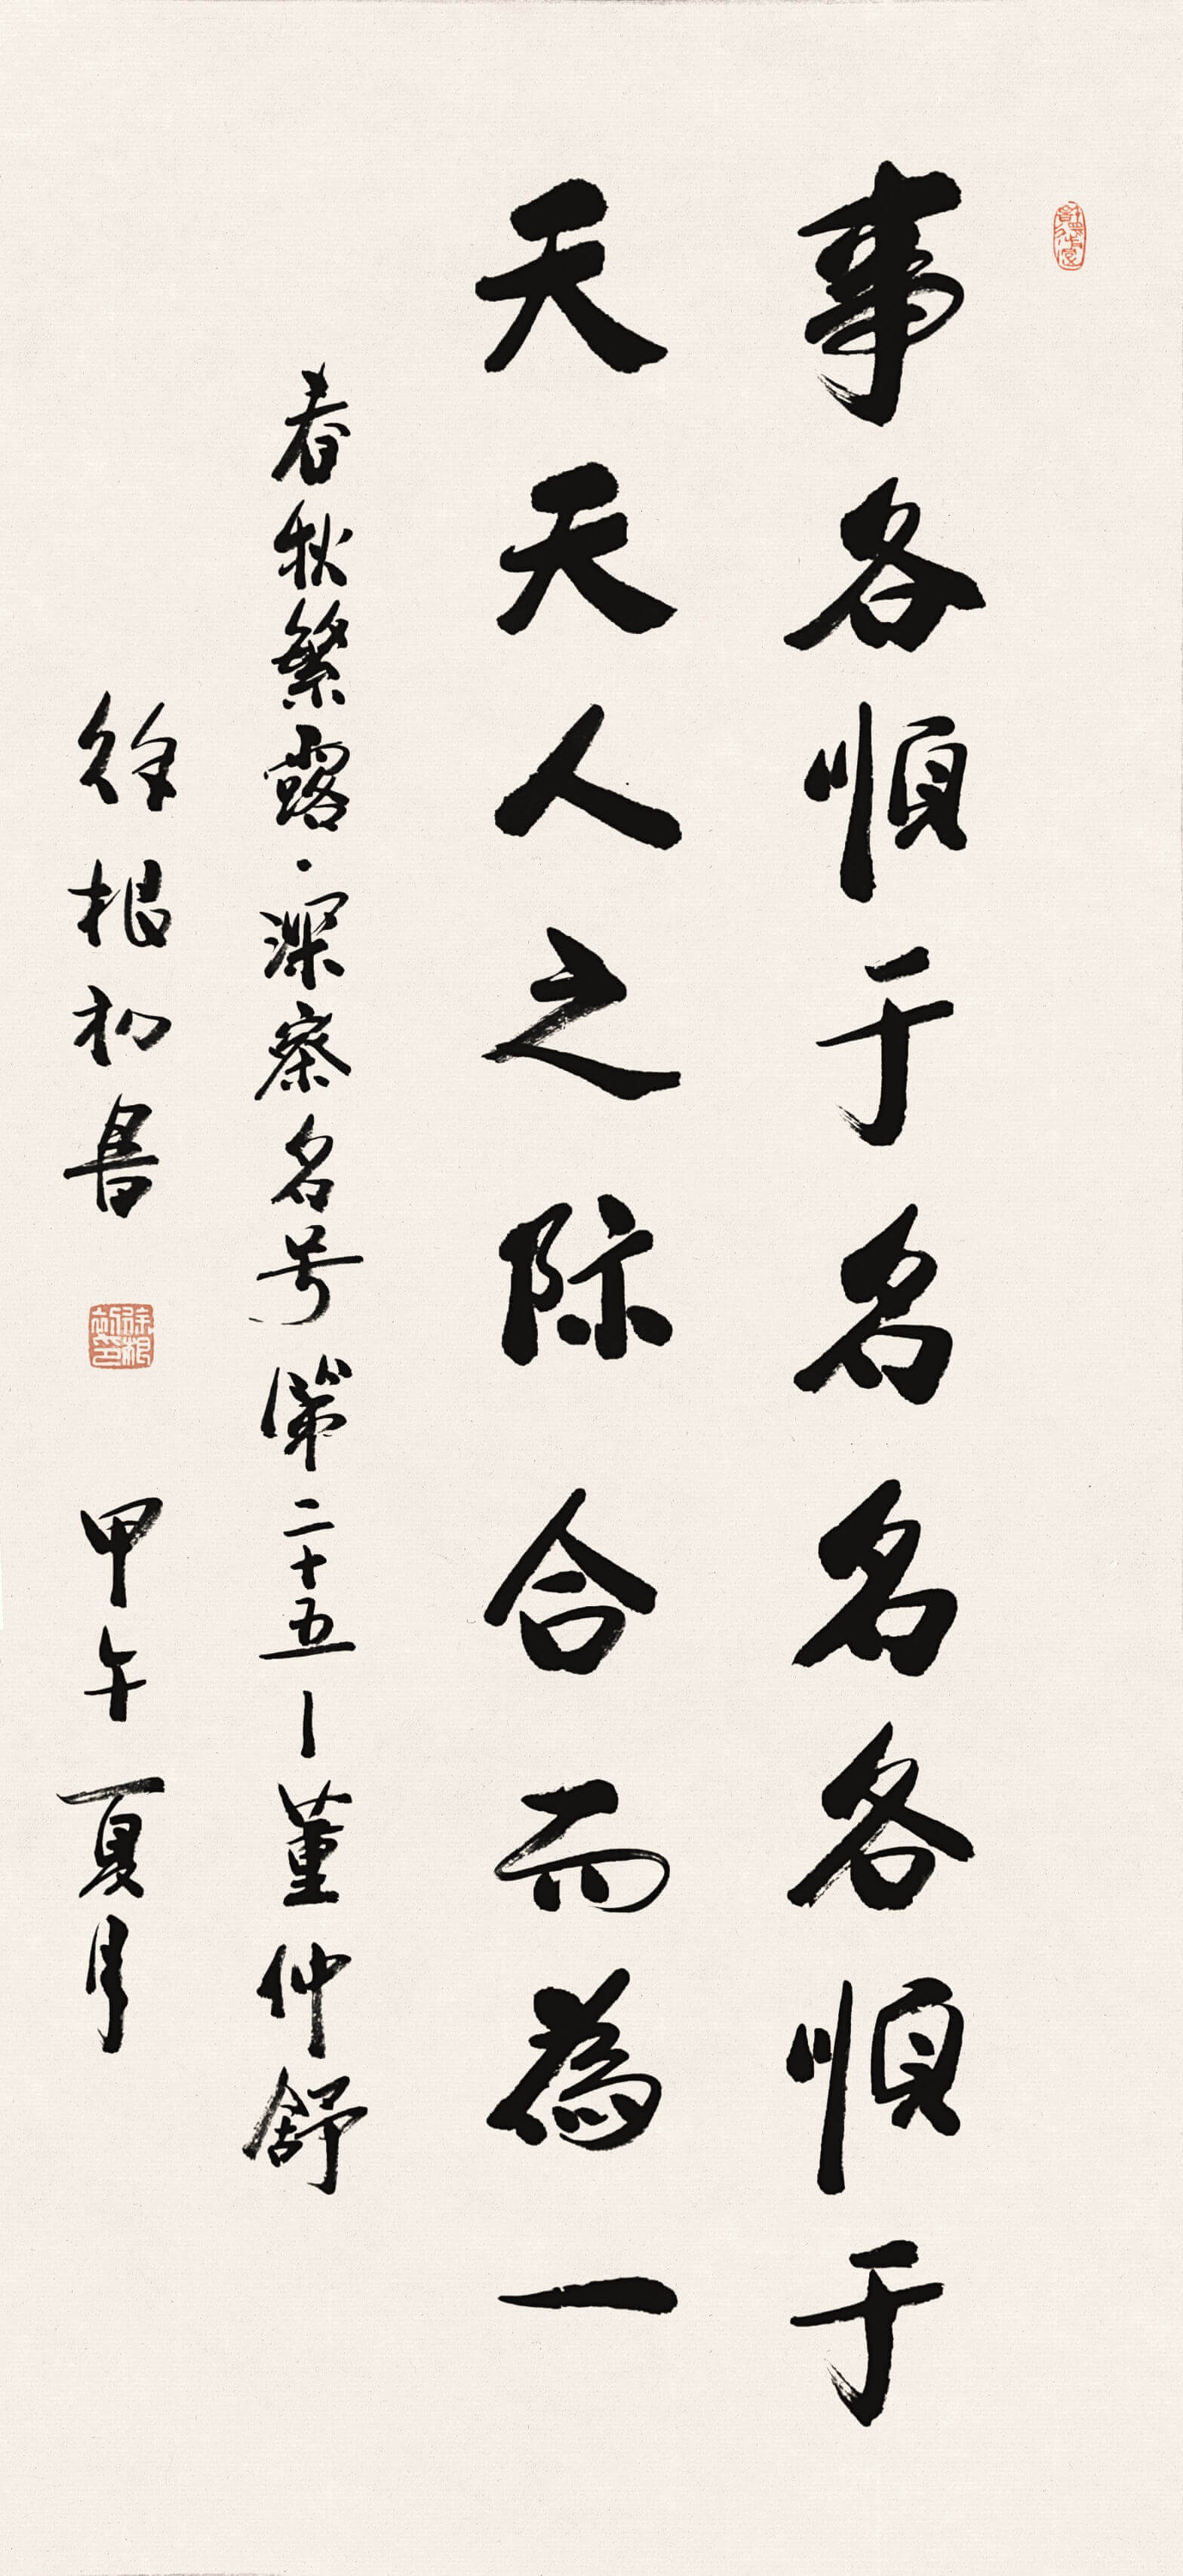 事各順于名名各順于
天天人之际合而為一
春秋繁露·深察名号第二十五—董仲舒
徐根初書 甲午夏月
徐根初印